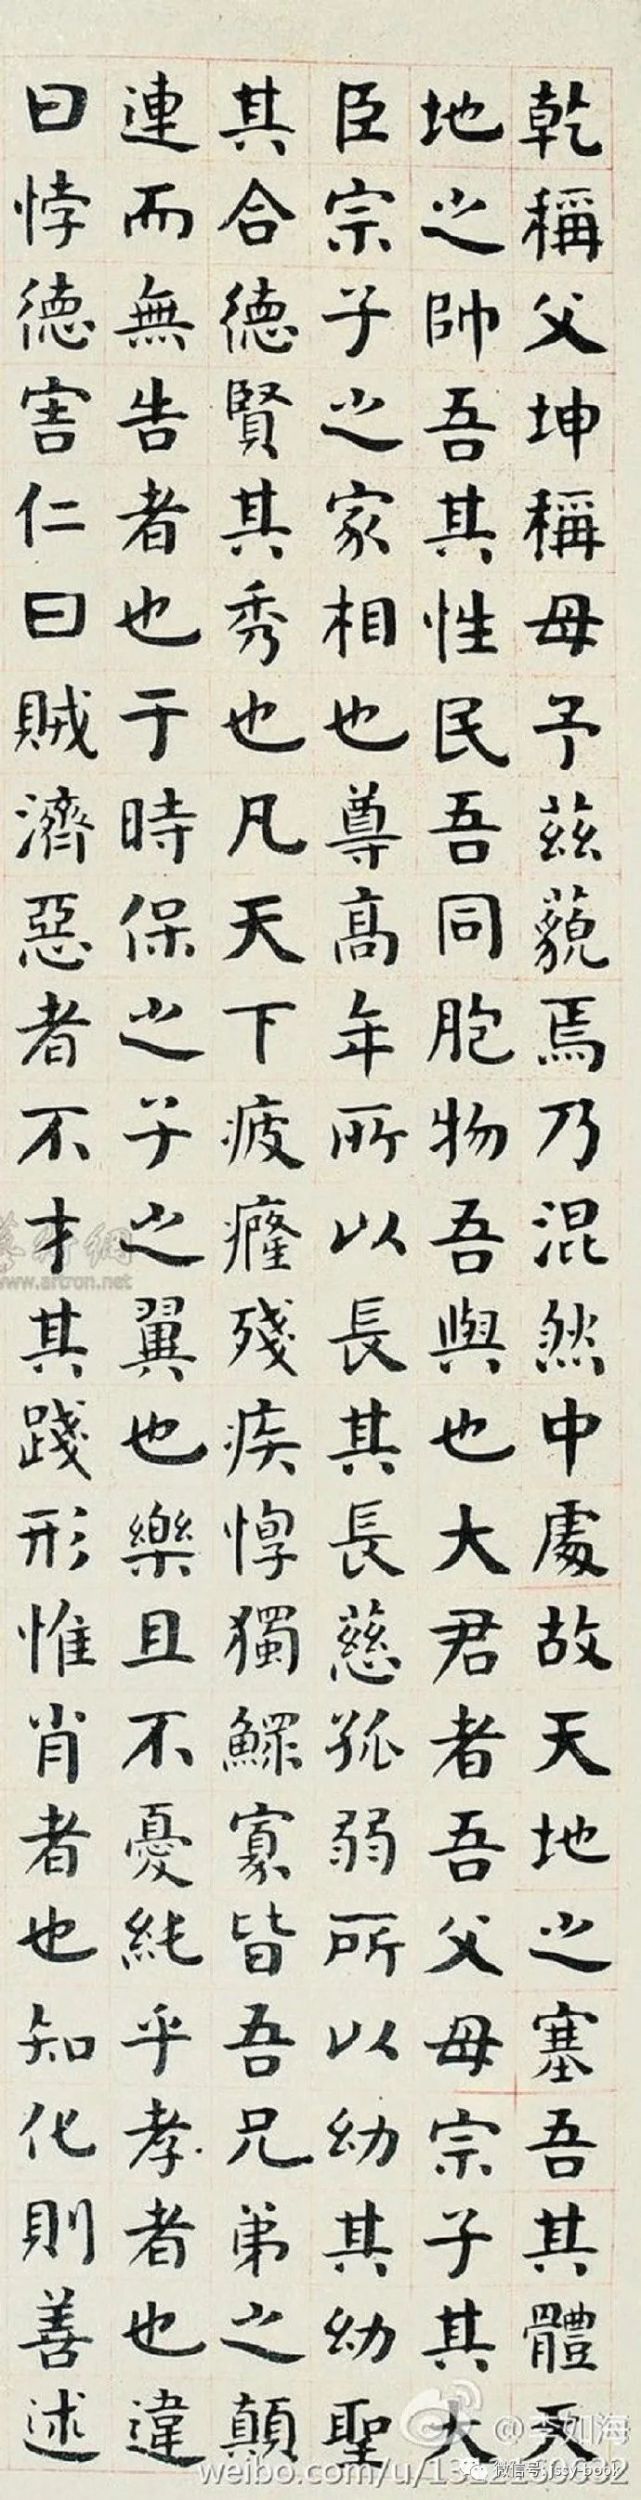 乾稱父坤稱母予茲藐焉乃混然中處故天地之塞吾其體天
地之帥吾其性民吾同胞物吾與也大君者吾父母宗子其大
臣宗子之家相也尊高年所以長其長慈孤弱所以幼其幼聖
其合德賢其秀也凡天下疲癃殘疾惸獨鰥寡皆吾兄弟之顛
連而無告者也于時保之子之翼也樂且不憂純乎孝者也違
曰悖德害仁曰賊濟惡者不才其踐形惟肖者也知化則善述
www.artron.net
微信号: